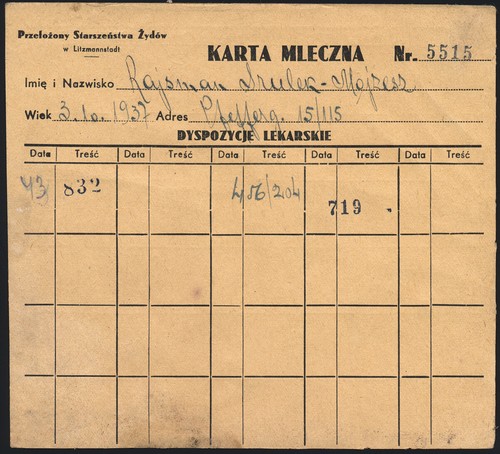 Przełożony Starszeństwa Żydów
w Litzmannstadt
KARTA MLECZNA Nr. 5515
Imię i Nazwisko Rajsman Srulek-Mojżesz
Wiek 3.10.1937 Adres Pfefferg. 15/115
DYSPOZYCJE LEKARSKIE
Data Treść Data Treść Data Treść Data Treść Data Treść
43 832 456/204 719